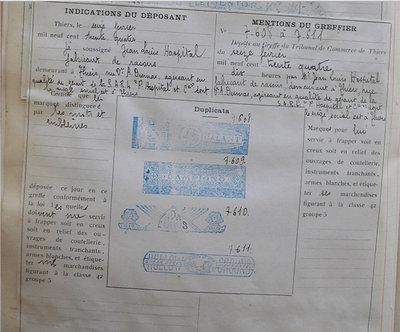 INDICATIONS DU DÉPOSANT
Thiers, le seize février
mil neuf cent trente quatre
je soussigné Jean Louis Hospital
fabricant de rasoirs
demeurant à Thiers, rue Dr A. Dumas, agissant en
qualité de gérant de la S.A.R.L. "P. Hospital et Cie" dont
le siège social est à Thiers
Certifie que les
marques distinguées
par les mots et
emblèmes
déposée ce jour en ce
greffe conformément à
la loi les quelles
doivent me servir
à frapper soit en creux
soit en relief des ou-
vrages de coutellerie,
instruments tranchants,
armes blanches, et étique-
ter mes marchandises
figurant à la classe 42
groupe 5
Duplicata
7.608.
7.609.
CHAMPIGNON
7.610.
7.611.
HOLLOW GROUND
HOLLOW GROUND
MENTIONS DU GREFFIER
No 7.608 à 7.611
Dépôts au Greffe du Tribunal de Commerce de Thiers
du seize février
mil neuf cent trente quatre,
dix heures par M. Jean Louis Hospital
fabricant de rasoirs, demeurant à Thiers, rue
Dr A. Dumas, agissant en qualité de gérant de la
S.A.R.L. "P. Hospital et Cie" dont
le siège social est à Thiers
Marques pour lui
servir à frapper soit en
creux soit en relief des
ouvrages de coutellerie,
instruments tranchants,
armes blanches, et étique-
ter ses marchandises
figurant à la classe 42
groupe 5